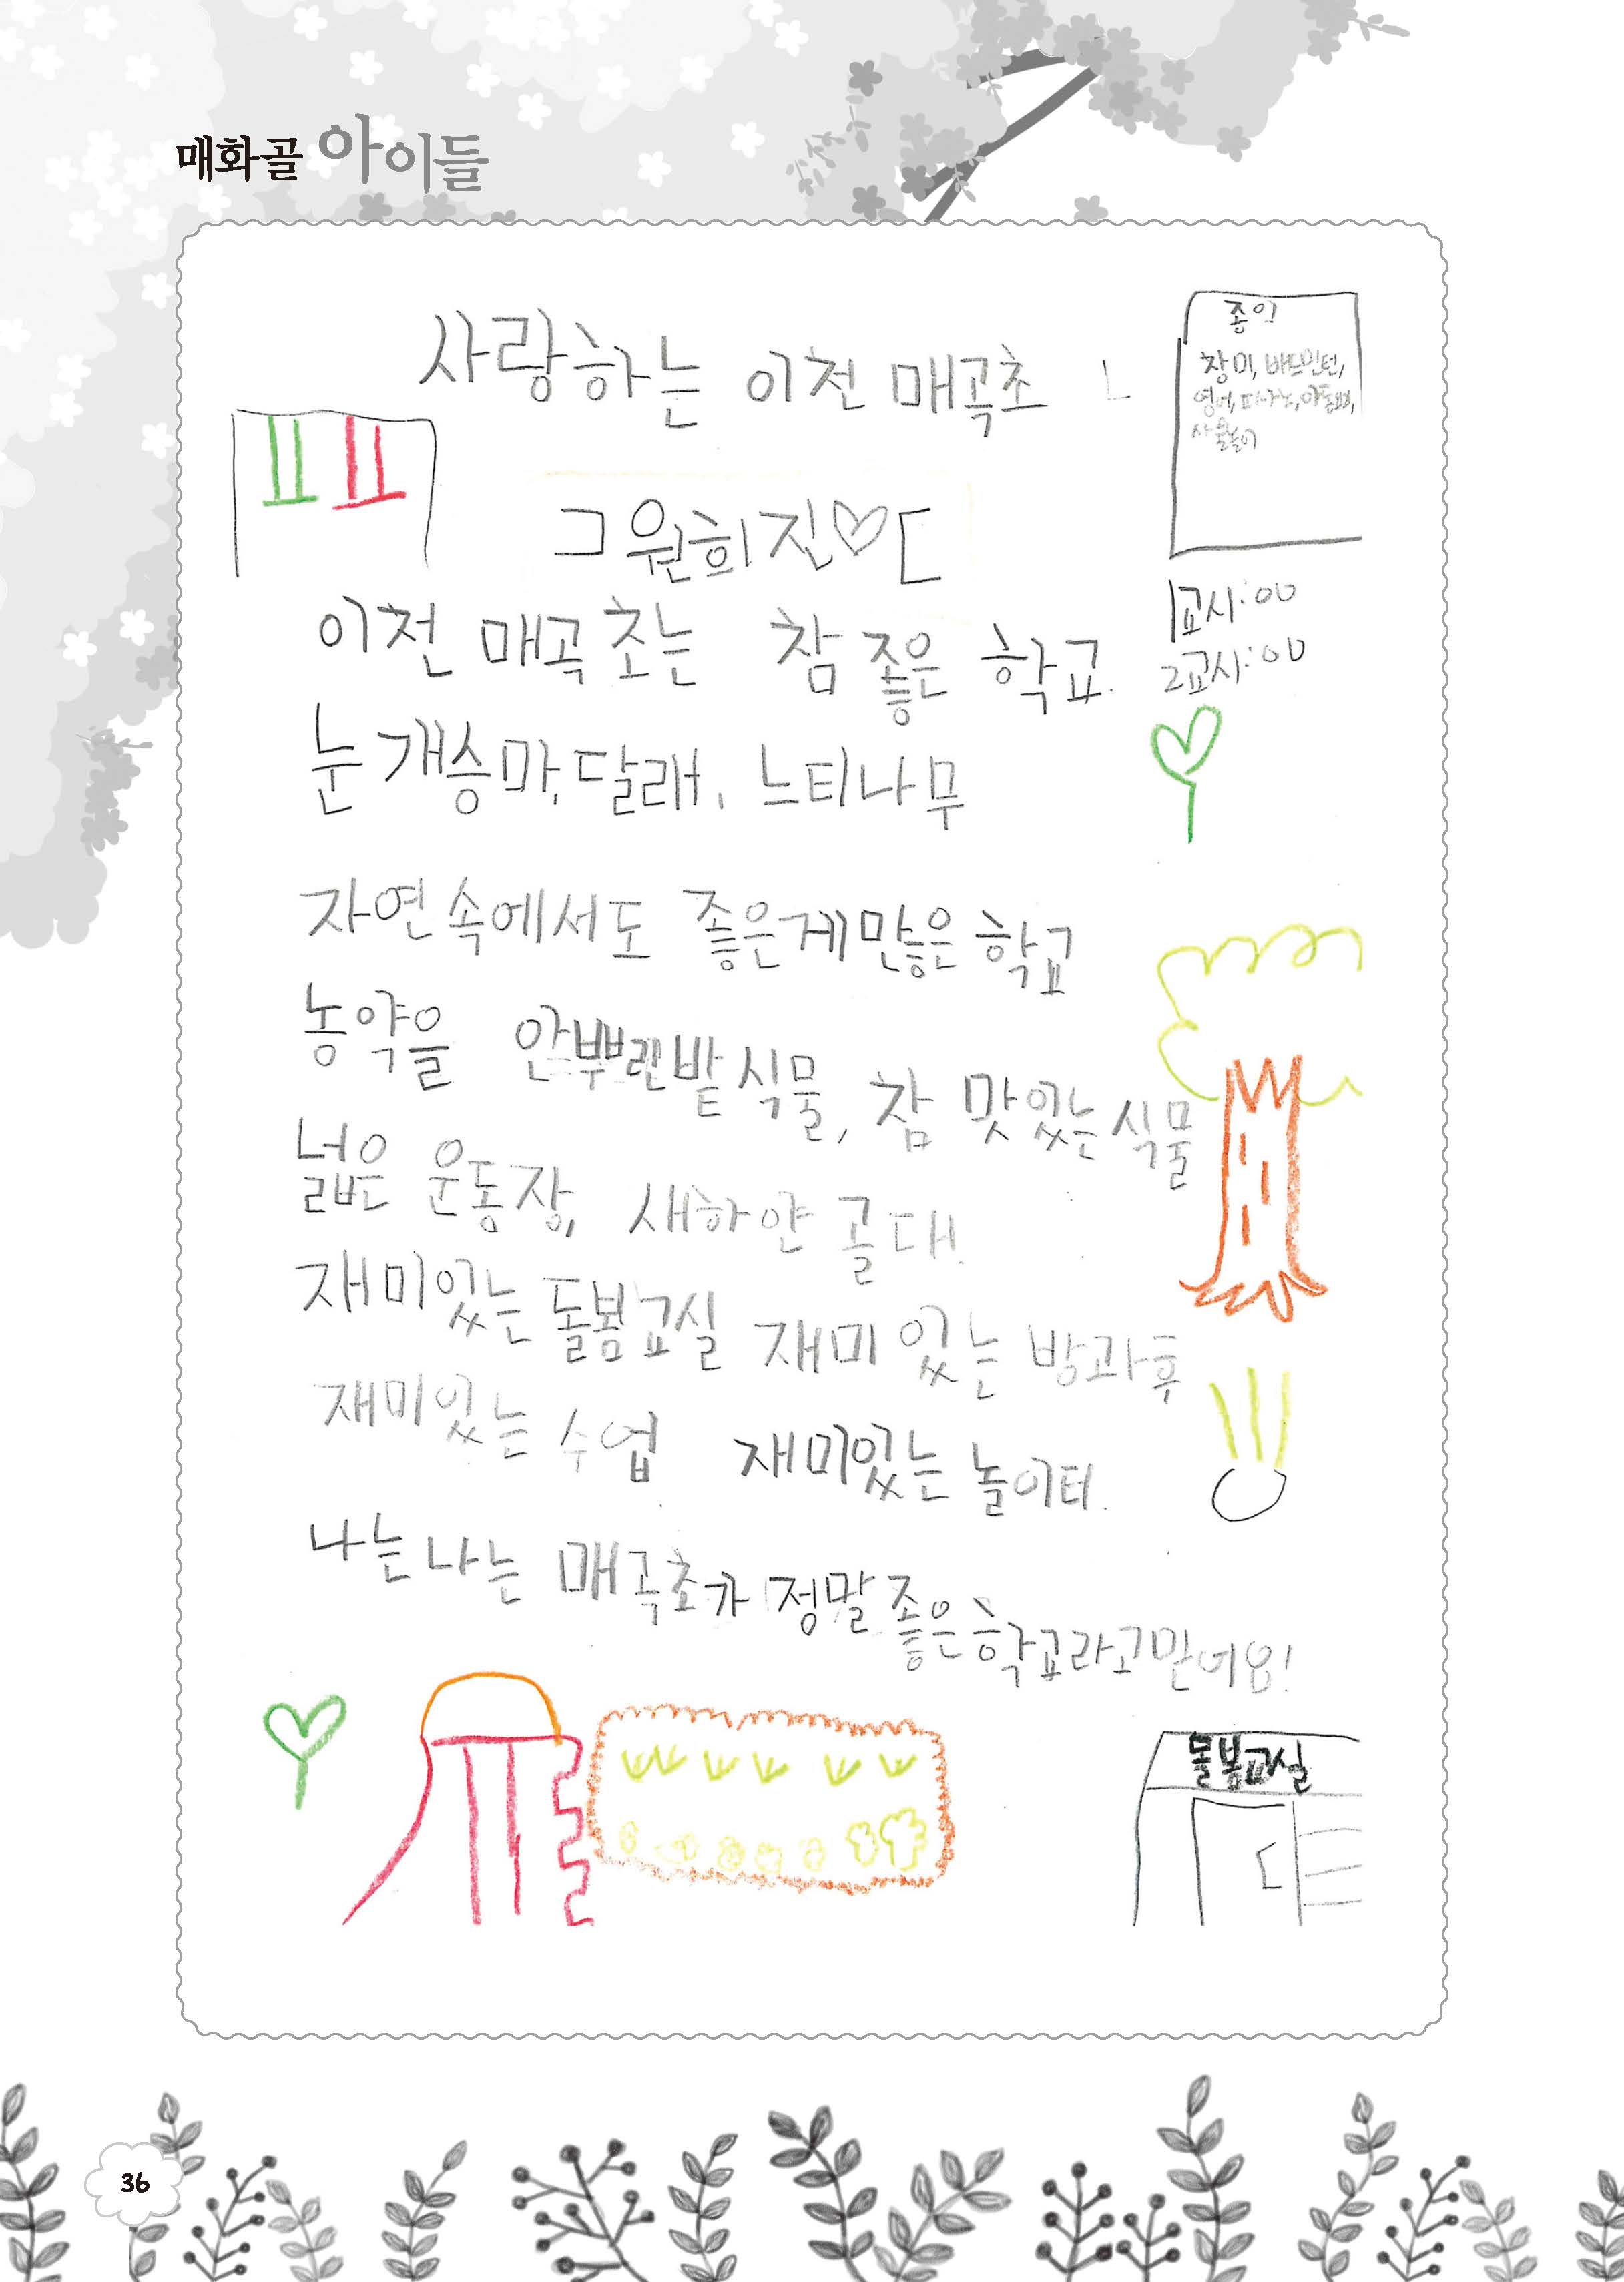 매화골 아이들
사랑하는 이천 매곡초
종이
창미, 배드민턴,
영어, 피아노,
사물놀이
요요
그 원희진♡
이천 매곡초는 참 좋은 학교.
1교시:00
2교시:00
눈개승마, 달래, 느티나무
자연속에서도 좋은게많은 학교
농약을 안뿌린밭식물, 참 맛있는식물
넓은 운동장, 새하얀 골대.
재미있는 돌봄교실 재미있는 방과후
재미있는 수업 재미있는 놀이터.
나는나는 매곡초가 정말좋은학교라고믿어요!
돌봄교실
36